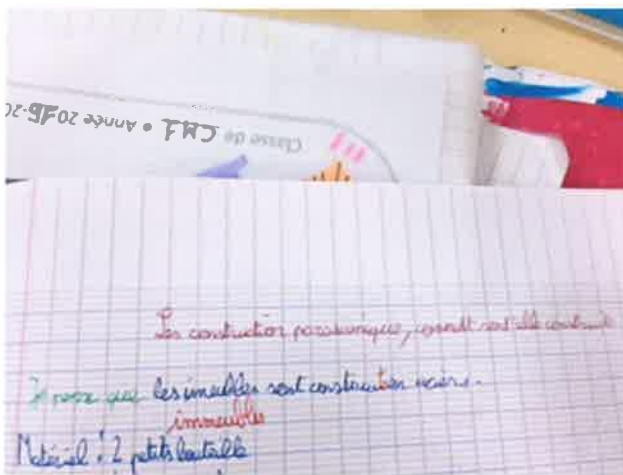 Classe de CM1 • Année 2016-20
Les construction parasismiques, comment sont elle construit
Je pense que les imeubles sont construit en
immeubles
Matériel : 2 petits bouteille